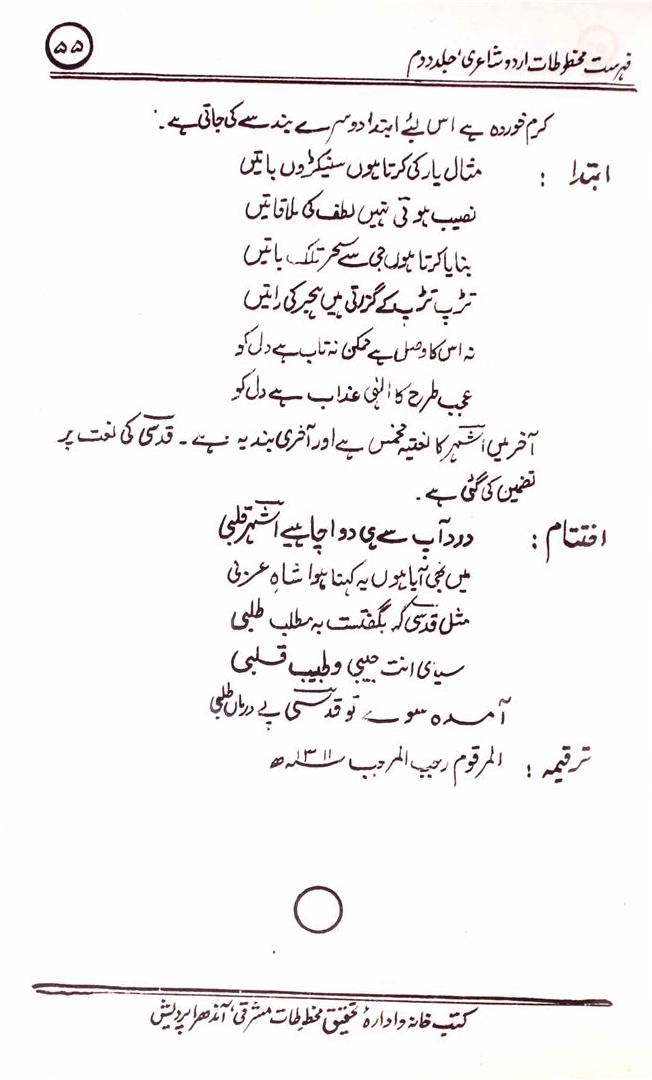 فہرست مخطوطات اردو شاعری، جلد دوم
۵۵
کرم خوردہ ہے اس لئے ابتدا دوسرے بند سے کی جاتی ہے۔
ابتدا : مثال یار کی کرتا ہوں سینکڑوں باتیں
نصیب ہوتی نہیں لطف کی ملاقاتیں
بنایا کرتا ہوں جی سے سحر تلک باتیں
تڑپ تڑپ کے گزرتی ہیں ہجر کی راتیں
نہ اس کا وصل ہے ممکن نہ تاب ہے دل کو
عجب طرح کا الٰہی عذاب ہے دل کو
آخر میں اشہر کا نعتیہ مخمس ہے اور آخری بند یہ ہے۔ قدسی کی نعت پر
تضمین کی گئی ہے۔
اختتام : درد آپ سے ہی دوا چاہیے اشہر قلبی
میں بھی آیا ہوں یہ کہتا ہوا شاہِ عربی
مثل قدسی کہ بگفتست بہ مطلب طلبی
سیدی انت حبیبی و طبیب قلبی
آمدہ سوے تو قدسی پے درماں طلبی
ترقیمہ : المرقوم رجب المرجب ۱۳۱۱ھ
کتب خانہ و ادارۂ تحقیق مخطوطات مشرقی، آندھرا پردیش